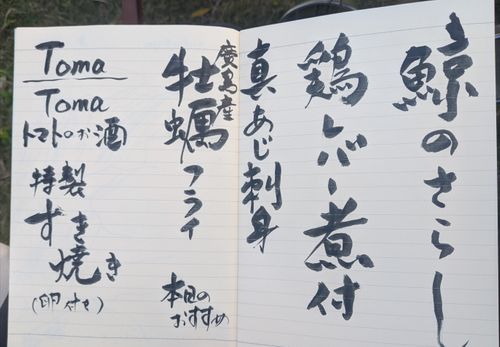 鯨のさらし
鶏レバー煮付
真あじ刺身
廣島産
牡蠣フライ
本日の
おすすめ
Toma
Toma
トマトのお酒
特製
すき
焼き
(卵付き)